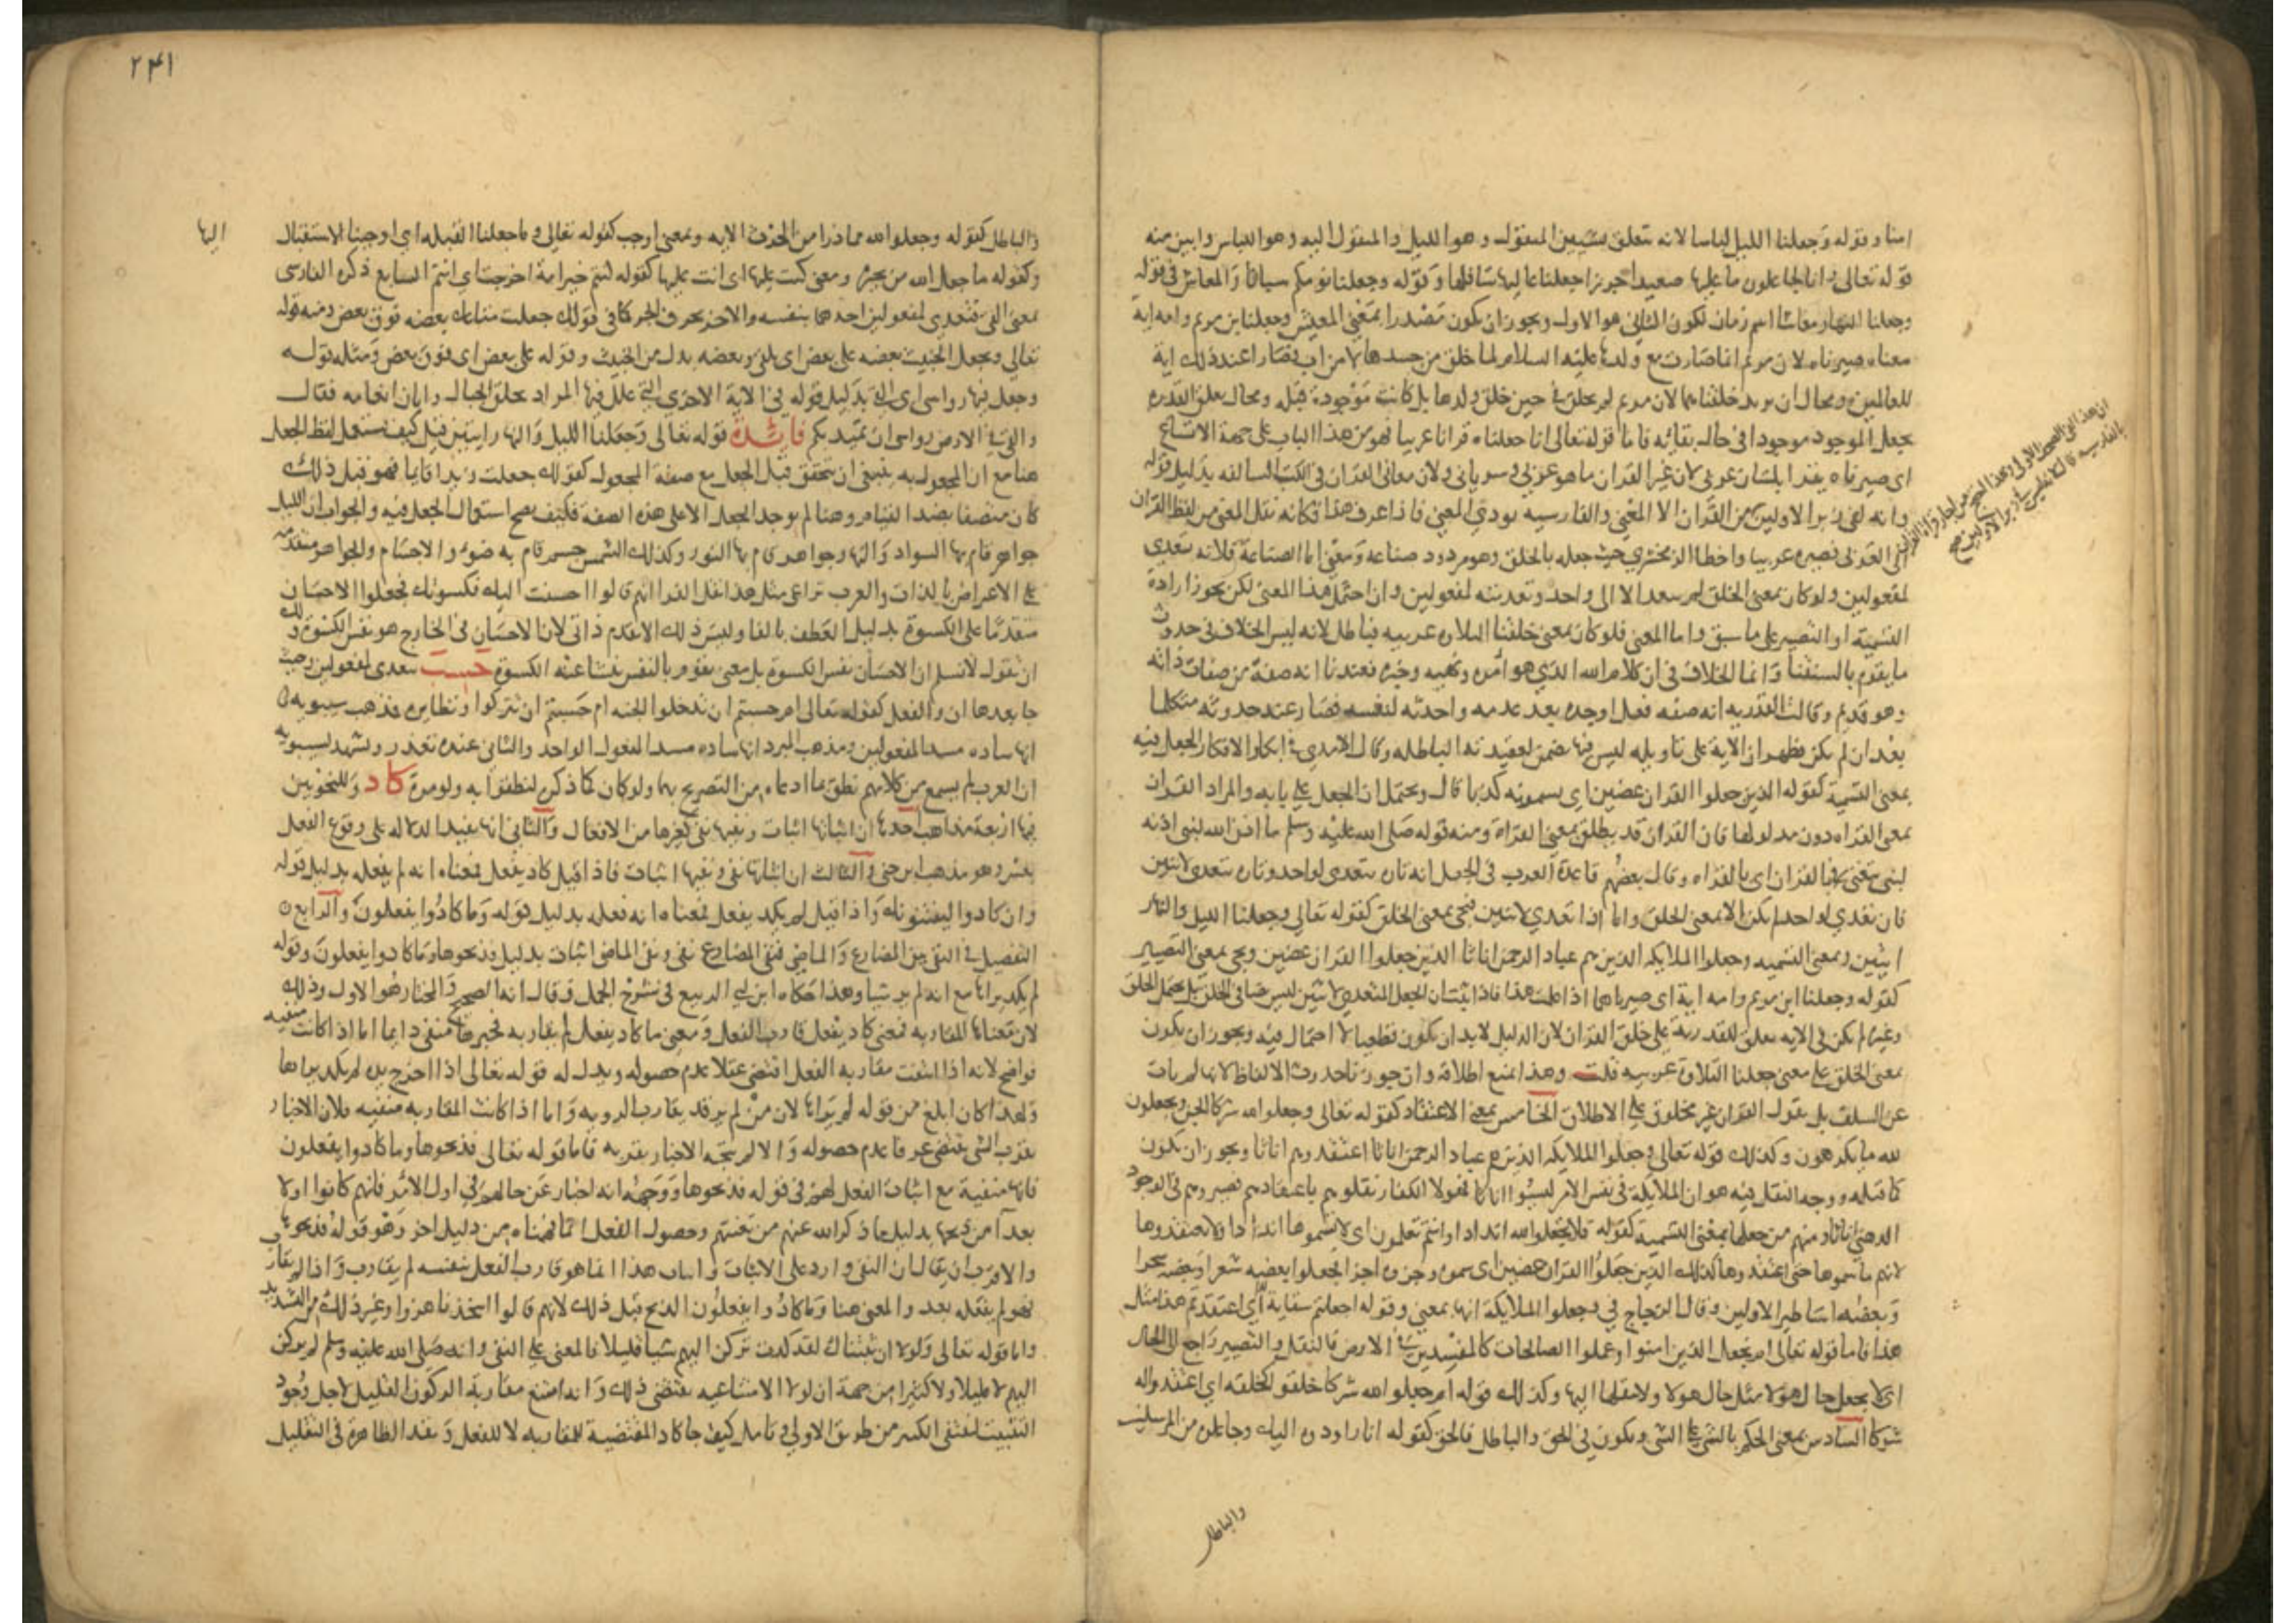 امنا وقوله وجعلنا الليل لباسا لانه تتعلق بشيين المنقول وهو الليل والمنقول اليه وهو اللباس وابين منه
قوله تعالى وانا لجاعلون ما عليها صعيدا جرزا جعلنا عاليها سافلها وقوله وجعلنا نومكم سباتا والمعاش في قوله
وجعلنا النهار معاشا اسم زمان لكون الثاني هو الاول ويجوز ان يكون مصدرا بمعنى المعيش وجعلنا ابن مريم وامه اية
معناه صيرناه لان مريم انما صارت مع ولدها عليه السلام لما خلق من جسدها لا من اب فصارا عند ذلك اية
للعالمين ومحال ان يريد خلقناهما لان مريم لم يخلق في حين خلق ولدها بل كانت موجودة قبله ومحال تعلق القدرة
بجعل الموجود موجودا في حال بقائه فاما قوله تعالى انا جعلناه قرانا عربيا فهو من هذا الباب على جهة الاتساع
اي صيرناه يقرا بلسان عربي لان غير القران ما هو عربي وسرياني ولان معاني القران في الكتب السالفه بدليل قوله
وانه لفي زبر الاولين من القران الا المعنى والفارسيه يودي المعنى فاذا عرف هذا فكانه نقل المعنى من لفظ القران
الى العربي فصيره عربيا واخطا الزمخشري حيث جعله بالخلق وهو مردود صناعه ومعنى اما الصناعة فلانه يتعدى
لمفعولين ولو كان بمعنى الخلق لم يتعد الا الى واحد وتعديته لمفعولين وان احتمل هذا المعنى لكن بجواز ارادة
التسمية او التصيير على ما سبق واما المعنى فلو كان بمعنى خلقنا التلاوة عربيه فباطل لانه ليس الخلاف في حدوث
ما يقوم بالسنتنا وانما الخلاف في ان كلام الله الذي هو امره ونهيه وخبره فعندنا انه صفة من صفات ذاته
وهو قديم وقالت القدريه انه صفه فعل اوجده بعد عدمه واحدثه لنفسه فصار عند حدوثه متكلما
بعد ان لم يكن فظهر ان الاية على تاويله ليس فيها تضمن لعقيدته الباطله وقال الامدي في ابكار الافكار الجعل فيه
بمعنى التسمية كقوله الذين جعلوا القران عضين اي يسمونه كذبا قال ويحتمل ان الجعل على بابه والمراد القران
بمعنى القراه دون مدلولها فان القران قد يطلق بمعنى القراة ومنه قوله صلى الله عليه وسلم ما اذن الله لشي اذنه
لنبي يتغنى بالقران اي بالقراه وقال بعضهم قاعدة العرب في الجعل انه تارة يتعدى لواحد وتارة يتعدى لاثنين
فان تعدى لواحد لم يكن الا بمعنى الخلق واما اذا تعدى لاثنين فيجي بمعنى الخلق كقوله تعالى وجعلنا الليل والنهار
ايتين وبمعنى التسميه وجعلوا الملايكه الذين هم عباد الرحمن اناثا الذين جعلوا القران عضين ويجي بمعنى التصيير
كقوله وجعلنا ابن مريم وامه اية اي صيرناهما اذا علمت هذا فاذا ثبت ان الجعل المتعدي لاثنين ليس نصا في الخلق بل يحتمل الخلق
وغيره لم يكن في الايه تعلق للقدرية على خلق القران لان الدليل لابد ان يكون قطعيا لا احتمال فيه ويجوز ان يكون
بمعنى الخلق على معنى جعلنا التلاوة عربيه قلت وهذا يمنع اطلاقه وان جوزنا حدوث الالفاظ لانها لم يات
عن السلف بل نقول القران غير مخلوق على الاطلاق الخامس بمعنى الاعتقاد كقوله تعالى وجعلوا لله شركا الجن ويجعلون
لله ما يكرهون وكذلك قوله تعالى وجعلوا الملايكه الذين هم عباد الرحمن اناثا اي اعتقدوهم اناثا ويجوز ان يكون
كما قبله ووجه النقل فيه هو ان الملايكة في نفس الامر ليسوا اناثا فهولا الكفار نقلوهم باعتقادهم فصيروهم في الوجود
الذهني اناثا ومنهم من جعلها بمعنى التسميه كقوله فلا تجعلوا لله اندادا وانتم تعلمون اي لا تسموها اندادا ولا تعتقدوها
لانهم ما سموها حتى اعتقدوها وكذلك الذين جعلوا القران عضين اي سموه وجزوه اجزا فجعلوا بعضه شعرا وبعضه سحرا
وبعضه اساطير الاولين وقال الزجاج في وجعلوا الملايكة انها بمعنى وقوله اجعلتم سقاية اي اعتقدتم هذا مثل
هذا فاما قوله تعالى ام نجعل الذين امنوا وعملوا الصالحات كالمفسدين في الارض فالنقل والتصيير راجع الى الحال
اي لا نجعل حال هولا مثل حال هولا ولا ننقلها اليها وكذلك قوله ام جعلوا لله شركا خلقوا كخلقه اي اعتقدوا له
شركا السادس بمعنى الحكم بالشي على الشي ويكون في الحق والباطل فالحق كقوله انا رادوه اليك وجاعلوه من المرسلين
والباطل
٢٤١
والباطل كقوله وجعلوا لله مما ذرا من الحرث الايه وبمعنى اوجب كقوله تعالى وما جعلنا القبله اي اوجبنا الاستقبال
اليها
وكقوله ما جعل الله من بحيرة ومعنى كنت عليها اي انت عليها كقوله كنتم خير امة اخرجت اي انتم السابع ذكره الفارسي
بمعنى القى فتتعدى لمفعولين احدهما بنفسه والاخر بحرف الجر كما في قولك جعلت متاعك بعضه فوق بعض ومنه قوله
تعالى ويجعل الخبيث بعضه على بعض اي يلقي وبعضه بدل من الخبيث وقوله على بعض اي فوق بعض ومثله قوله
وجعل فيها رواسي اي القى بدليل قوله في الاية الاخرى التي علل فيها المراد بخلق الجبال وابان انعامه فقال
والقى في الارض رواسي ان تميد بكم فايدة قوله تعالى وجعلنا الليل والنهار ايتين قيل كيف استعمل لفظ الجعل
هنا مع ان المجعول به ينبغي ان يتحقق قبل الجعل مع صفة المجعول كقولك جعلت زيدا قايما فهو قبل ذلك
كان متصفا بضد القيام وهنا لم يوجد الجعل الا على هذه الصفه فكيف يصح استعمال الجعل فيه والجواب ان الليل
جواهر قام بها السواد والنهار جواهر قام بها النور وكذلك الشمس جسم قام به ضوء والاجسام والجواهر متقدمه
على الاعراض بالذات والعرب تراعي مثل هذا نقل الفرا انهم قالوا احسنت اليك فكسوتك فجعلوا الاحسان
متقدما على الكسوة بدليل العطف بالفا وليس ذلك الا تقدم ذاتي لان الاحسان في الخارج هو نفس الكسوة ولك
ان تقول لا نسلم ان الاحسان نفس الكسوة بل معنى يقوم بالنفس ينشا عنه الكسوة حسبت يتعدى لمفعولين وحيث
جا بعدها ان والفعل كقوله تعالى ام حسبتم ان تدخلوا الجنه ام حسبتم ان تتركوا ونظايره فذهب سيبويه
انها سادة مسد المفعولين ومذهب المبرد انها سادة مسد المفعول الواحد والثاني عنده مقدر ويشهد لسيبويه
ان العرب لم يسمع من كلامهم نطق بما ادعاه من التصريح بهما ولو كان كما ذكره لنطقوا به ولو مرة كاد وللنحويين
فيها اربعة مذاهب احدها ان اثباتها اثبات ونفيها نفي كغيرها من الافعال والثاني انها تفيد الدلاله على وقوع الفعل
بعسر وهو مذهب ابن جني والثالث ان اثباتها نفي ونفيها اثبات فاذا قيل كاد يفعل فمعناه انه لم يفعله بدليل قوله
وان كادوا ليفتنونك واذا قيل لم يكد يفعل فمعناه انه فعله بدليل قوله وما كادوا يفعلون والرابع
التفصيل في النفي بين المضارع والماضي فنفي المضارع نفي ونفي الماضي اثبات بدليل فذبحوها وما كادوا يفعلون وقوله
لم يكد يراها مع انه لم ير شيا وهذا حكاه ابن ابي الربيع في شرح الجمل وقال انه الصحيح والمختار هو الاول وذلك
لان معناها المقاربه فمعنى كاد يفعل قارب الفعل ومعنى ما كاد يفعل لم يقاربه فخبرها منفي دايما اما اذا كانت منفيه
فواضح لانه اذا انتفت مقاربه الفعل اقتضى عقلا عدم حصوله ويدل له قوله تعالى اذا اخرج يده لم يكد يراها
ولهذا كان ابلغ من قوله لم يراها لان من لم ير قد يقارب الرويه واما اذا كانت المقاربه منفيه فلان الاخبار
بقرب الشي يقتضي عرفا عدم حصوله والا لم يتجه الاخبار بقربه فاما قوله تعالى فذبحوها وما كادوا يفعلون
فانها منفية مع اثبات الفعل لهم في قوله فذبحوها ووجهه انه اخبار عن حالهم في اول الامر فانهم كانوا اولا
بعدا من ذبحها بدليل ما ذكر الله عنهم من تعنتهم وحصول الفعل انما فهمناه من دليل اخر وهو قوله فذبحوها
والاقرب ان يقال ان النفي وارد على الاثبات واثبات هذا انما هو قارب الفعل بنفسه لم يقارب واذا لم يقارب
فهو لم يفعله بعد والمعنى هنا وما كادوا يفعلون الذبح قبل ذلك لانهم قالوا اتتخذنا هزوا وغير ذلك من التشديد
واما قوله تعالى ولولا ان ثبتناك لقد كدت تركن اليهم شيا قليلا فالمعنى على النفي وانه صلى الله عليه وسلم لم يركن
اليهم لا قليلا ولا كثيرا من جهة ان لولا الامتناعيه تقتضي ذلك وانه امتنع مقاربة الركون القليل لاجل وجود
التثبيت لينتفي الكثير من طريق الاولى وتامل كيف جا كاد المقتضية للمقاربه لا للفعل وبقد الظاهرة في التقليل